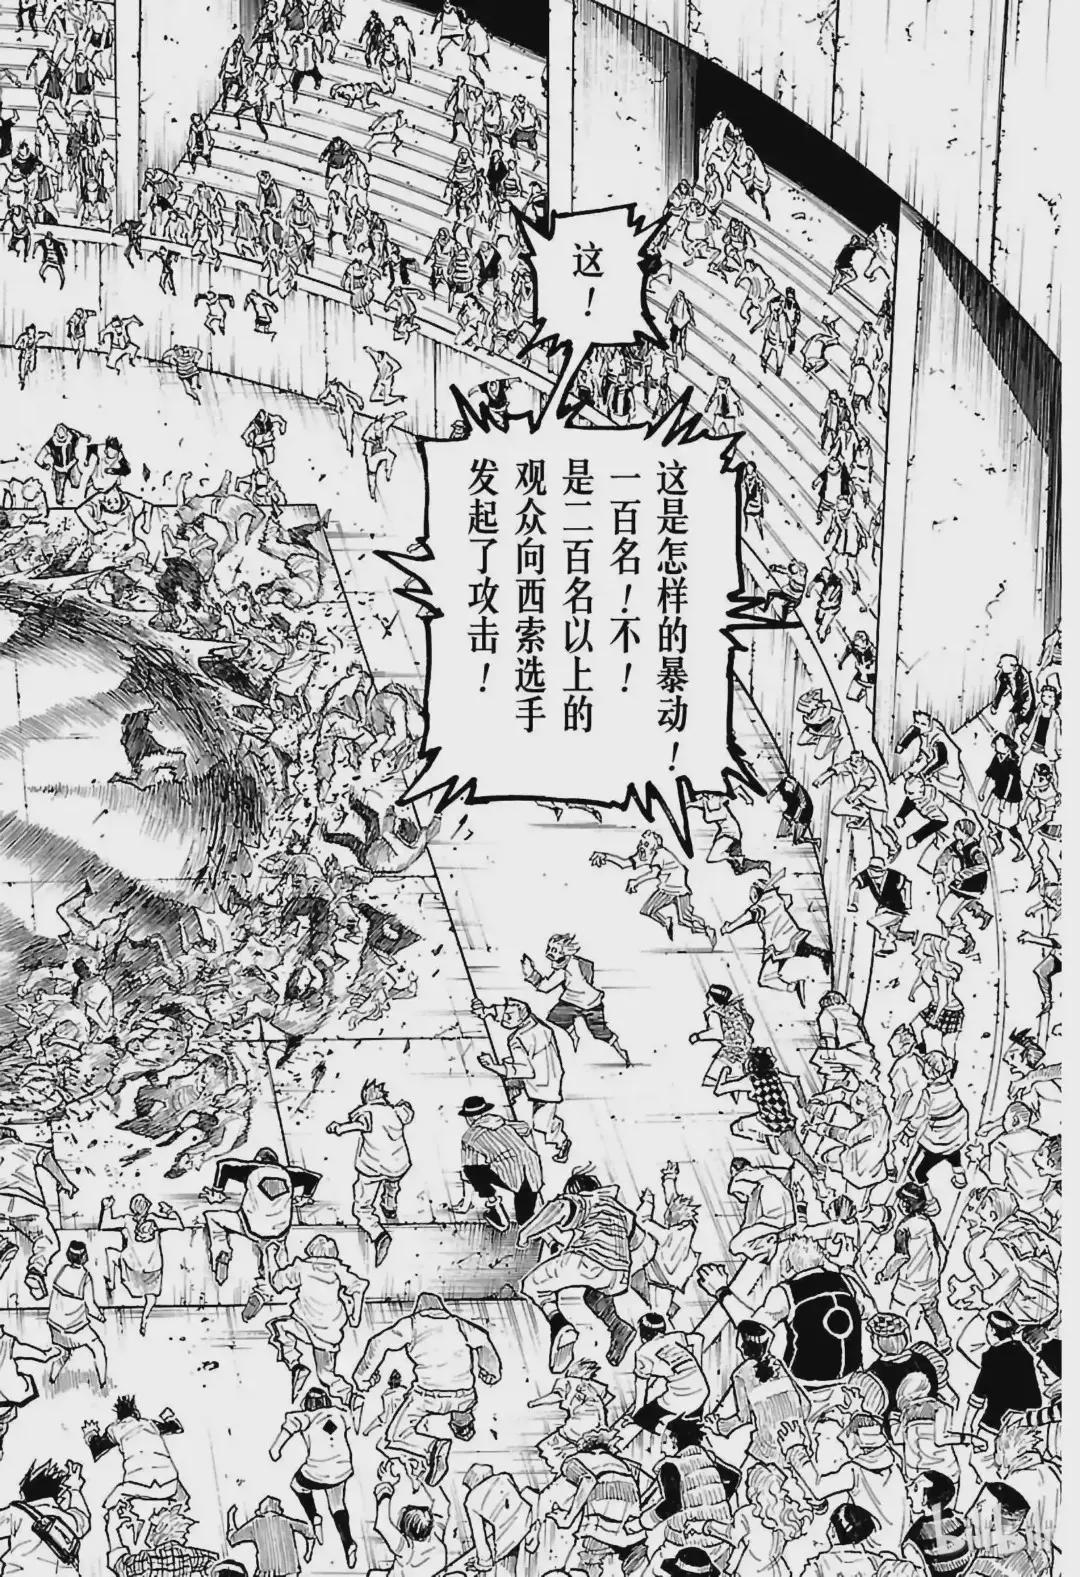 这！
这是怎样的暴动！
一百名！不！
是二百名以上的
观众向西索选手
发起了攻击！